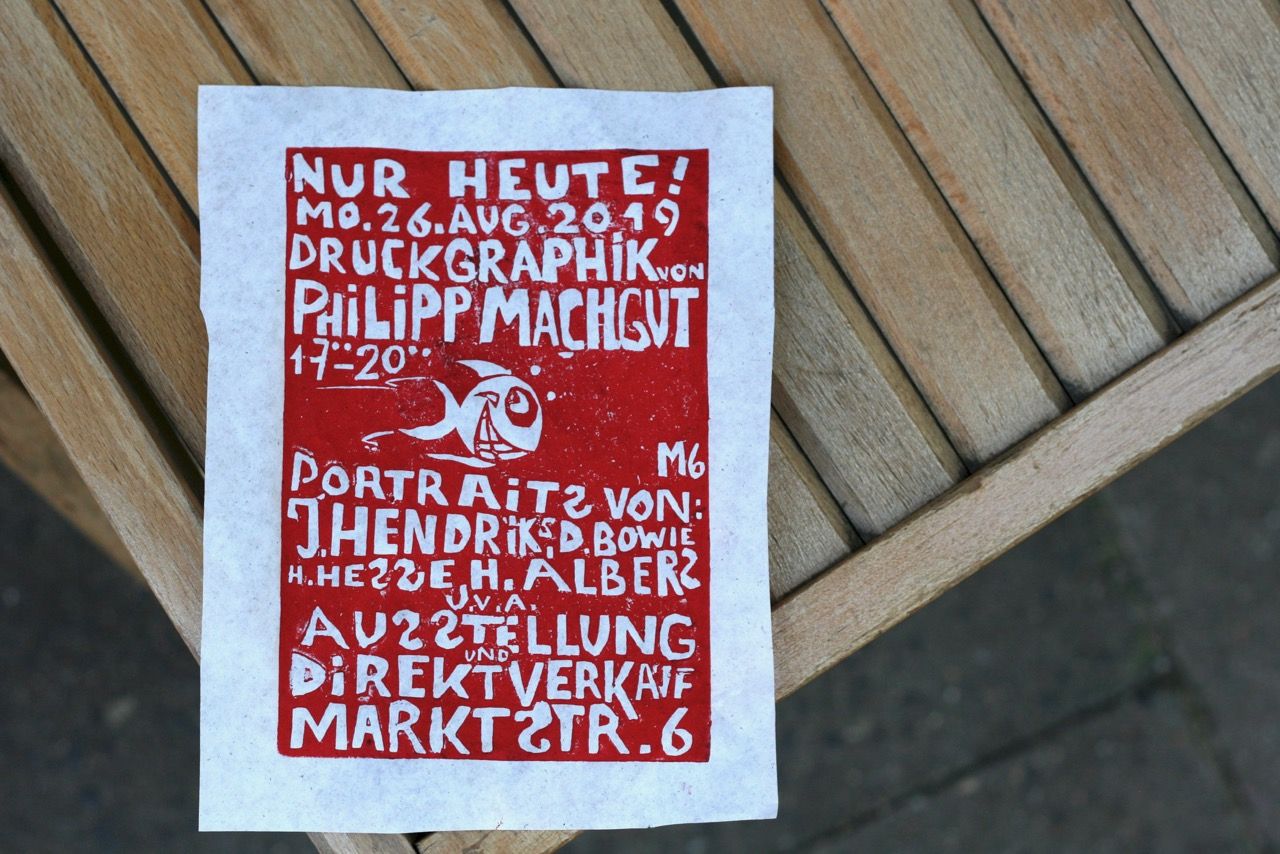 NUR HEUTE!
MO.26.AUG.2019
DRUCKGRAPHiK VON
PHiLiPP MACHGUT
17⁰⁰-20⁰⁰
M6
PORTRAiTS VON:
J.HENDRiKS,D.BOWiE
H.HESSE,H.ALBERS
U.V.A.
AUSSTELLUNG
UND
DiREKTVERKAUF
MARKTSTR.6